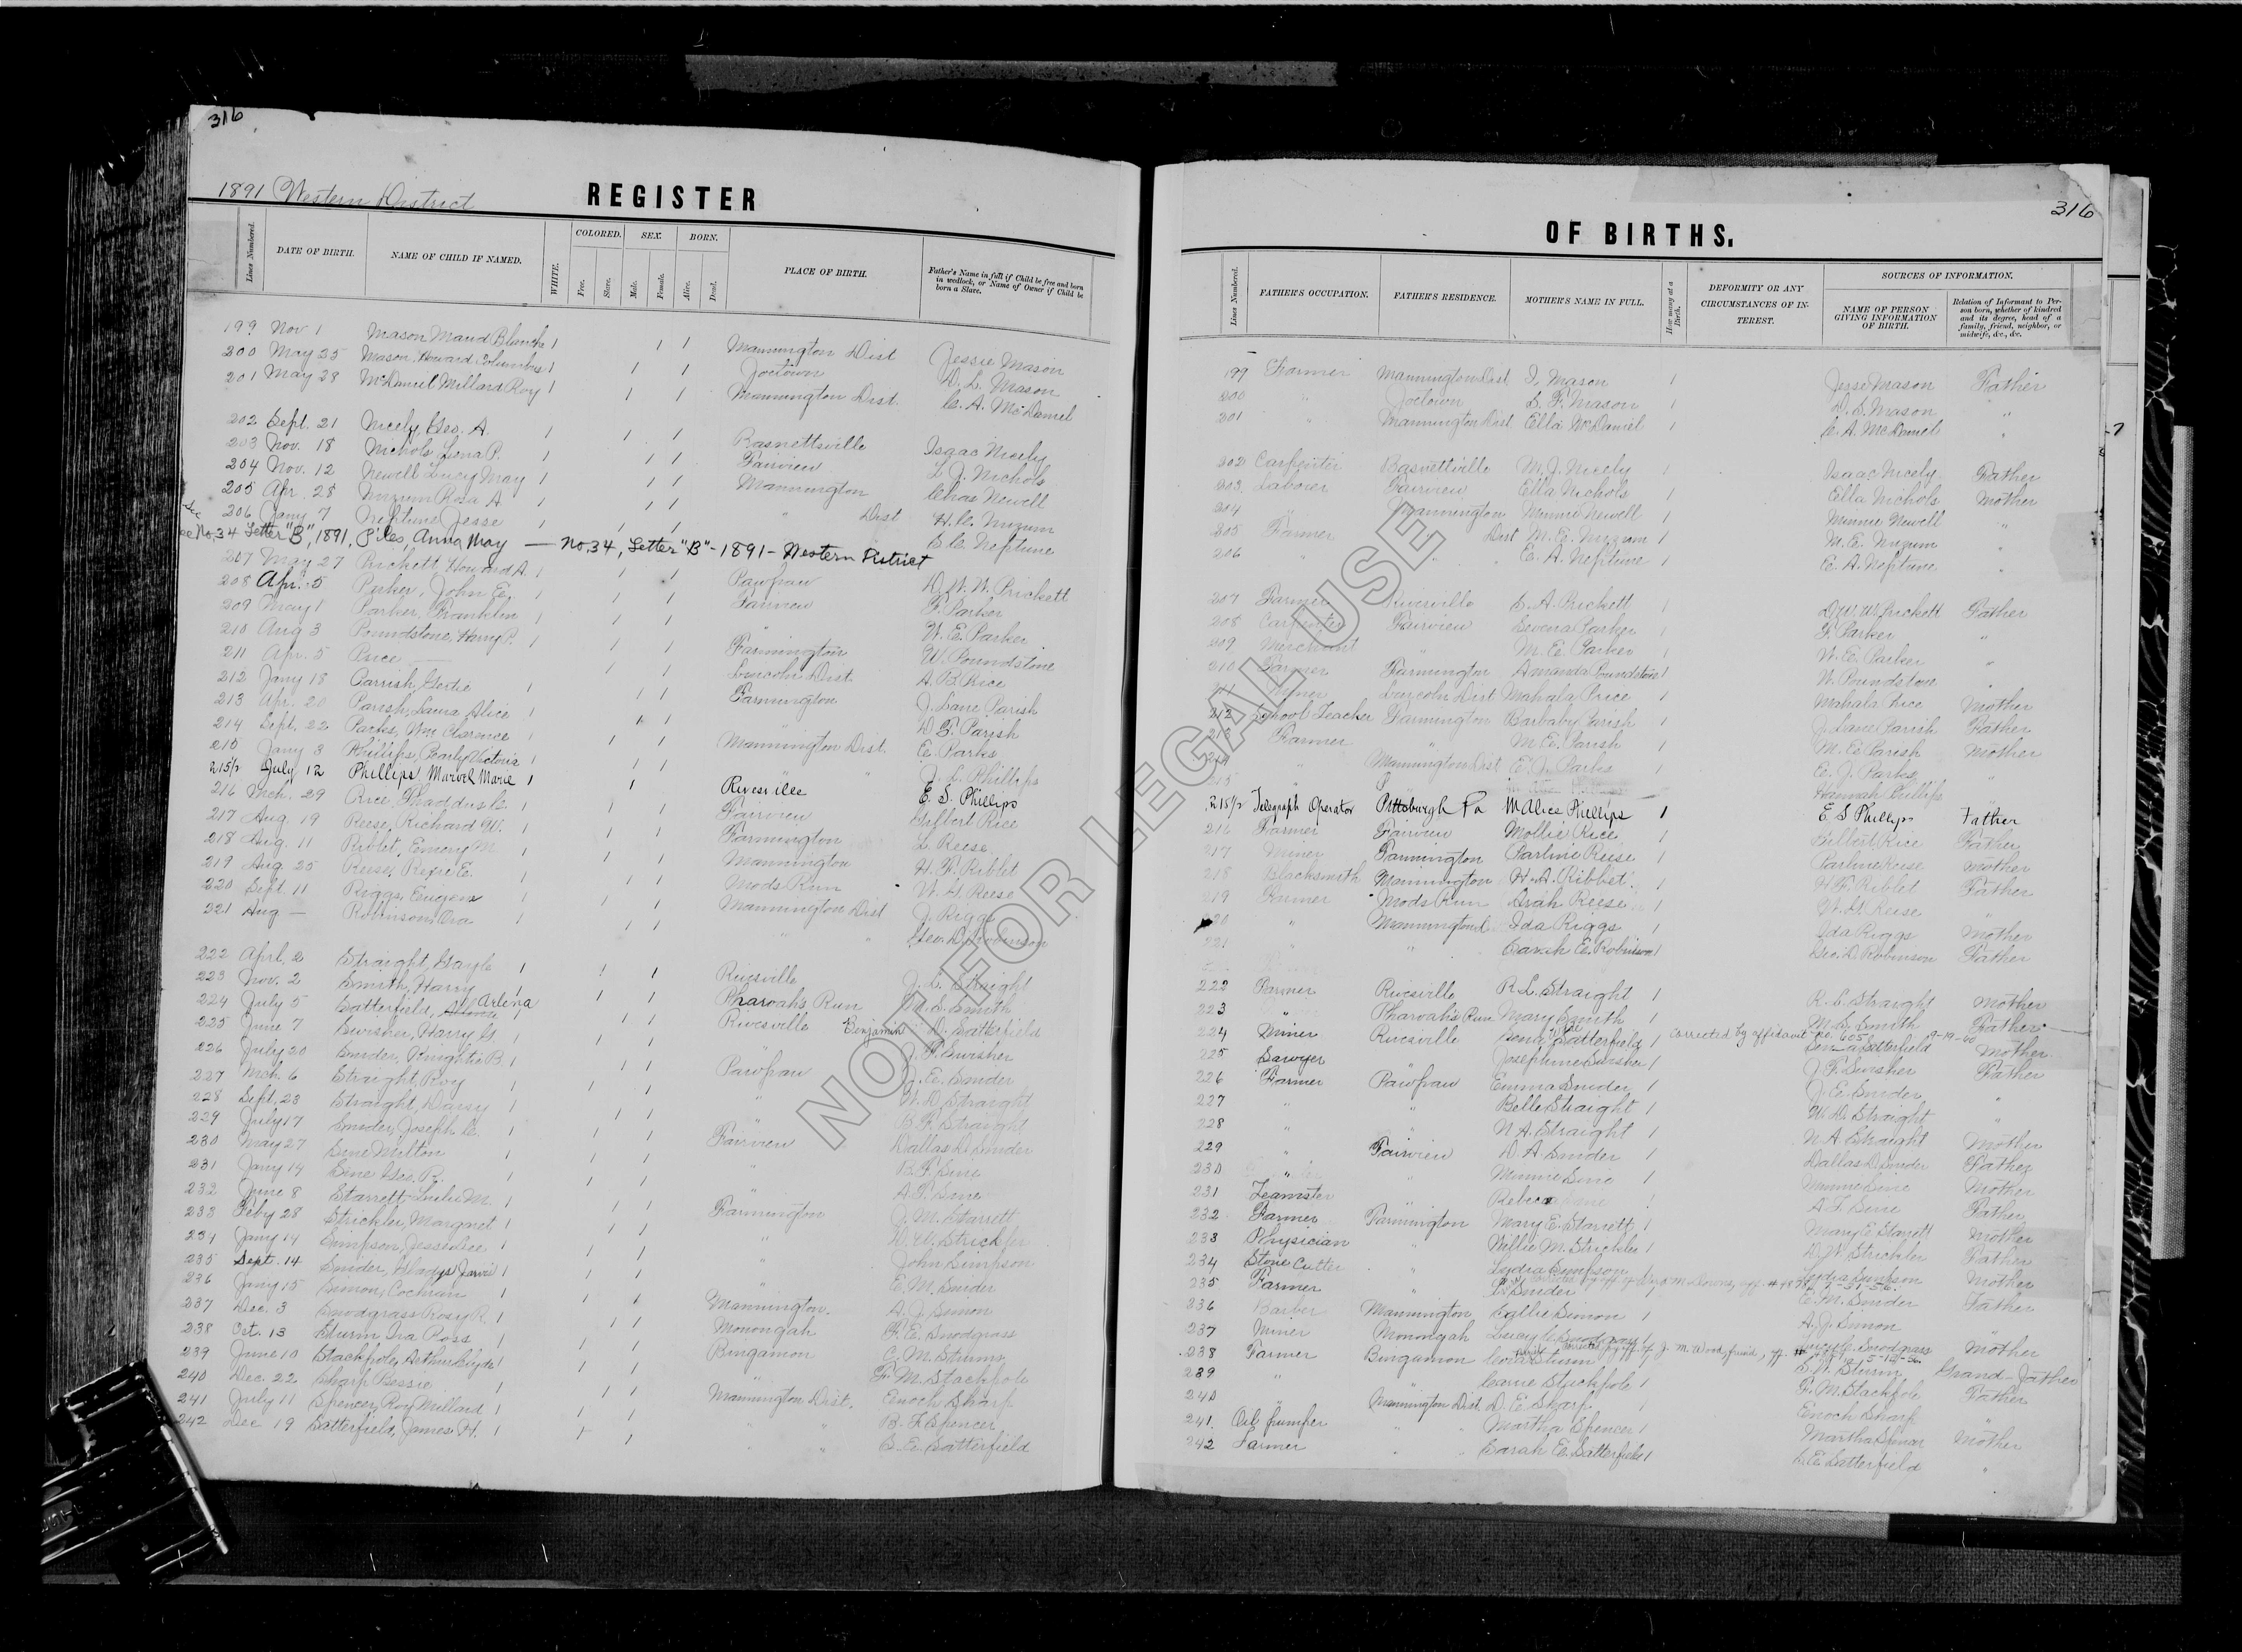 316
1891 Western District REGISTER
Lines Numbered. DATE OF BIRTH. NAME OF CHILD IF NAMED. WHITE. COLORED. Free. Slave. SEX. Male. Female. BORN. Alive. Dead. PLACE OF BIRTH. Father's Name in full if Child be free and born in wedlock, or Name of Owner if Child be born a Slave.
199 Nov 1 Mason Maud Blanche 1 1 1 Mannington Dist Jessie Mason
200 May 25 Mason, Howard Columbus 1 1 1 Joetown D. L. Mason
201 May 28 McDaniel Millard Roy 1 1 1 Mannington Dist. C. A. McDaniel
202 Sept. 21 Nicely, Geo. A. 1 1 1 Basnettsville Isaac Nicely
203 Nov. 18 Nichols Lena P. 1 1 1 Fairview L. J. Nichols
204 Nov. 12 Newell Lucy May 1 1 1 Mannington Chas Newell
205 Apr. 28 Nuzum Rosa A 1 1 1 " Dist H. C. Nuzum
206 Jany 7 Neptune Jesse 1 1 1 S. C. Neptune
See No. 34 Letter "B", 1891, Piles, Anna May — No. 34, Letter "B" - 1891 - Western District
207 May 27 Prickett, Howard A. 1 1 1 Pawpaw D. W. W. Prickett
208 Apr. 5 Parker, John E. 1 1 1 Fairview F. Parker
209 May 1 Parker, Franklin 1 1 1 " W. E. Parker
210 Aug 3 Poundstone, Harry P. 1 1 1 Farmington W. Poundstone
211 Apr. 5 Price — 1 1 Lincoln Dist. A. B. Price
212 Jany 18 Parrish, Gertie 1 1 1 Farmington J. Lane Parish
213 Apr. 20 Parish, Laura Alice 1 1 1 " D. F. Parish
214 Sept. 22 Parks, Wm Clarence 1 1 1 Mannington Dist. E. Parks
215 Jany 3 Phillips, Pearly Victoria 1 1 1 " " J. L. Phillips
215½ July 12 Phillips Marvel Marie 1 1 Rivesville E. S. Phillips
216 Mch. 29 Rice, Thaddus C. 1 1 1 Fairview Gilbert Rice
217 Aug. 19 Reese, Richard W. 1 1 1 Farmington L. Reese
218 Aug. 11 Riblet, Emery M. 1 1 1 Mannington H. F. Riblet
219 Aug. 25 Reese, Roxie E. 1 1 1 Mods Run W. H. Reese
220 Sept. 11 Riggs, Eugene 1 1 1 Mannington Dist J. Riggs
221 Aug — Robinson, Ora 1 1 1 " " Geo. D. Robinson
222 Aprl. 2 Straight, Gayle 1 1 1 Rivesville J. C. Straight
223 Nov. 2 Smith, Harry 1 1 1 Pharoah's Run M. S. Smith
224 July 5 Satterfield, Arlena 1 1 1 Rivesville Benjamin D. Satterfield
225 June 7 Swisher, Harry G. 1 1 1 " J. F. Swisher
226 July 20 Snider, Knightie B. 1 1 1 Pawpaw J. E. Snider
227 Mch. 6 Straight, Roy 1 1 1 " W. D. Straight
228 Sept. 23 Straight, Daisy 1 1 1 " B. F. Straight
229 July 17 Snider, Joseph C. 1 1 1 Fairview Dallas D. Snider
230 May 27 Sine Milton 1 1 1 " B. F. Sine
231 Jany 14 Sine Geo. R. 1 1 1 " A. F. Sine
232 June 8 Starrett Leslie M. 1 1 1 Farmington J. M. Starrett
233 Feby 28 Strickler, Margaret 1 1 1 " D. W. Strickler
234 Jany 14 Simpson, Jessie Lee 1 1 1 " John Simpson
235 Sept. 14 Snider, Gladys Jarvis 1 1 1 " E. M. Snider
236 Jany 15 Simon, Cochran 1 1 1 Mannington. A. J. Simon
237 Dec. 3 Snodgrass Rosy R. 1 1 1 Monongah F. E. Snodgrass
238 Oct. 13 Sturm, Ira Ross 1 1 1 Bingamon C. M. Sturm
239 June 10 Stackpole, Arthur Clyde 1 1 1 " F. M. Stackpole
240 Dec. 22 Sharp Bessie 1 1 1 Mannington Dist. Enoch Sharp
241 July 11 Spencer, Roy Millard 1 1 1 " " B. F. Spencer
242 Dec 19 Satterfield, James H. 1 1 1 " " S. E. Satterfield
316
OF BIRTHS.
Lines Numbered. FATHER'S OCCUPATION. FATHER'S RESIDENCE. MOTHER'S NAME IN FULL. How many at a Birth. DEFORMITY OR ANY CIRCUMSTANCES OF INTEREST. SOURCES OF INFORMATION. NAME OF PERSON GIVING INFORMATION OF BIRTH. Relation of Informant to Person born, whether of kindred and its degree, head of a family, friend, neighbor, or midwife, &c., &c.
199 Farmer Mannington Dist I. Mason 1 Jesse Mason Father
200 " Joetown S. F. Mason 1 D. L. Mason "
201 " Mannington Dist Ella McDaniel 1 C. A. McDaniel "
202 Carpenter Basnettville M. J. Nicely 1 Isaac Nicely Father
203 Laborer Fairview Ella Nichols 1 Ella Nichols Mother
204 " Mannington Minnie Newell 1 Minnie Newell "
205 Farmer " Dist M. E. Nuzum 1 M. E. Nuzum "
206 " " " E. A. Neptune 1 E. A. Neptune "
207 Farmer Rivesville S. A. Prickett 1 D. W. W. Prickett Father
208 Carpenter Fairview Severa Parker 1 F. Parker "
209 Merchant " M. E. Parker 1 W. E. Parker "
210 Farmer Farmington Amanda Poundstone 1 W. Poundston "
211 Miner Lincoln Dist Mahala Price 1 Mahala Price Mother
212 School Teacher Farmington Barbaby Parish 1 J. Lane Parish Father
213 Farmer " M. E. Parish 1 M. E. Parish Mother
214 " Mannington Dist E. J. Parks 1 E. J. Parks "
215 Hannah Phillips "
215½ Telegraph Operator Pittsburgh Pa M Alice Phillips 1 E S Phillips Father
216 Farmer Fairview Mollie Rice 1 Gilbert Rice Father
217 Miner Farmington Parline Reese 1 Parline Reese Mother
218 Blacksmith Mannington W. A. Ribbet 1 H. F. Riblet Father
219 Farmer Mods Run Avah Reese 1 W. H. Reese "
220 " Mannington d Ida Riggs 1 Ida Riggs Mother
221 " " Sarah E. Robinson 1 Geo. D. Robinson Father
222 Farmer Rivesville R. L. Straight 1 R. L. Straight Mother
223 " Pharoah's Run Mary Smith 1 M. S. Smith Father
224 Miner Rivesville Lena Satterfield 1 Corrected by affidavit No. 605 9-19-40 Lena Satterfield Mother
225 Sawyer " Josephine Swisher 1 J. F. Swisher Father
226 Farmer Pawpaw Emma Snider 1 J. E. Snider "
227 " " Belle Straight 1 W. D. Straight "
228 " " N. A. Straight 1 N. A. Straight Mother
229 " Fairview D. A. Snider 1 Dallas D. Snider Father
230 " " Minnie Sine 1 Minnie Sine Mother
231 Teamster " Rebeca Sine 1 A. F. Sine Father
232 Farmer Farmington Mary E. Starrett 1 Mary E. Starrett Mother
233 Physician " Nellie M. Strickler 1 D. W. Strickler Father
234 Stone Cutter " Lydia Simpson 1 Lydia Simpson Mother
235 Farmer " Snider 1 E. M. Snider Father
236 Barber Mannington Callie Simon 1 A. J. Simon "
237 Miner Monongah Lucy C. Snodgrass 1 Lucy C. Snodgrass Mother
238 Farmer Bingamon Cora Sturm 1 corrected by aff. of J. M. Wood, friend, 5-12-56 S. W. Sturm Grand-Father
239 " " Carrie Stackpole 1 F. M. Stackpole Father
240 " Mannington Dist D. E. Sharp 1 Enoch Sharp "
241 Oil pumper " " Martha Spencer 1 Martha Spencer Mother
242 Farmer " " Sarah E. Satterfield 1 S. E. Satterfield "
NOT FOR LEGAL USE